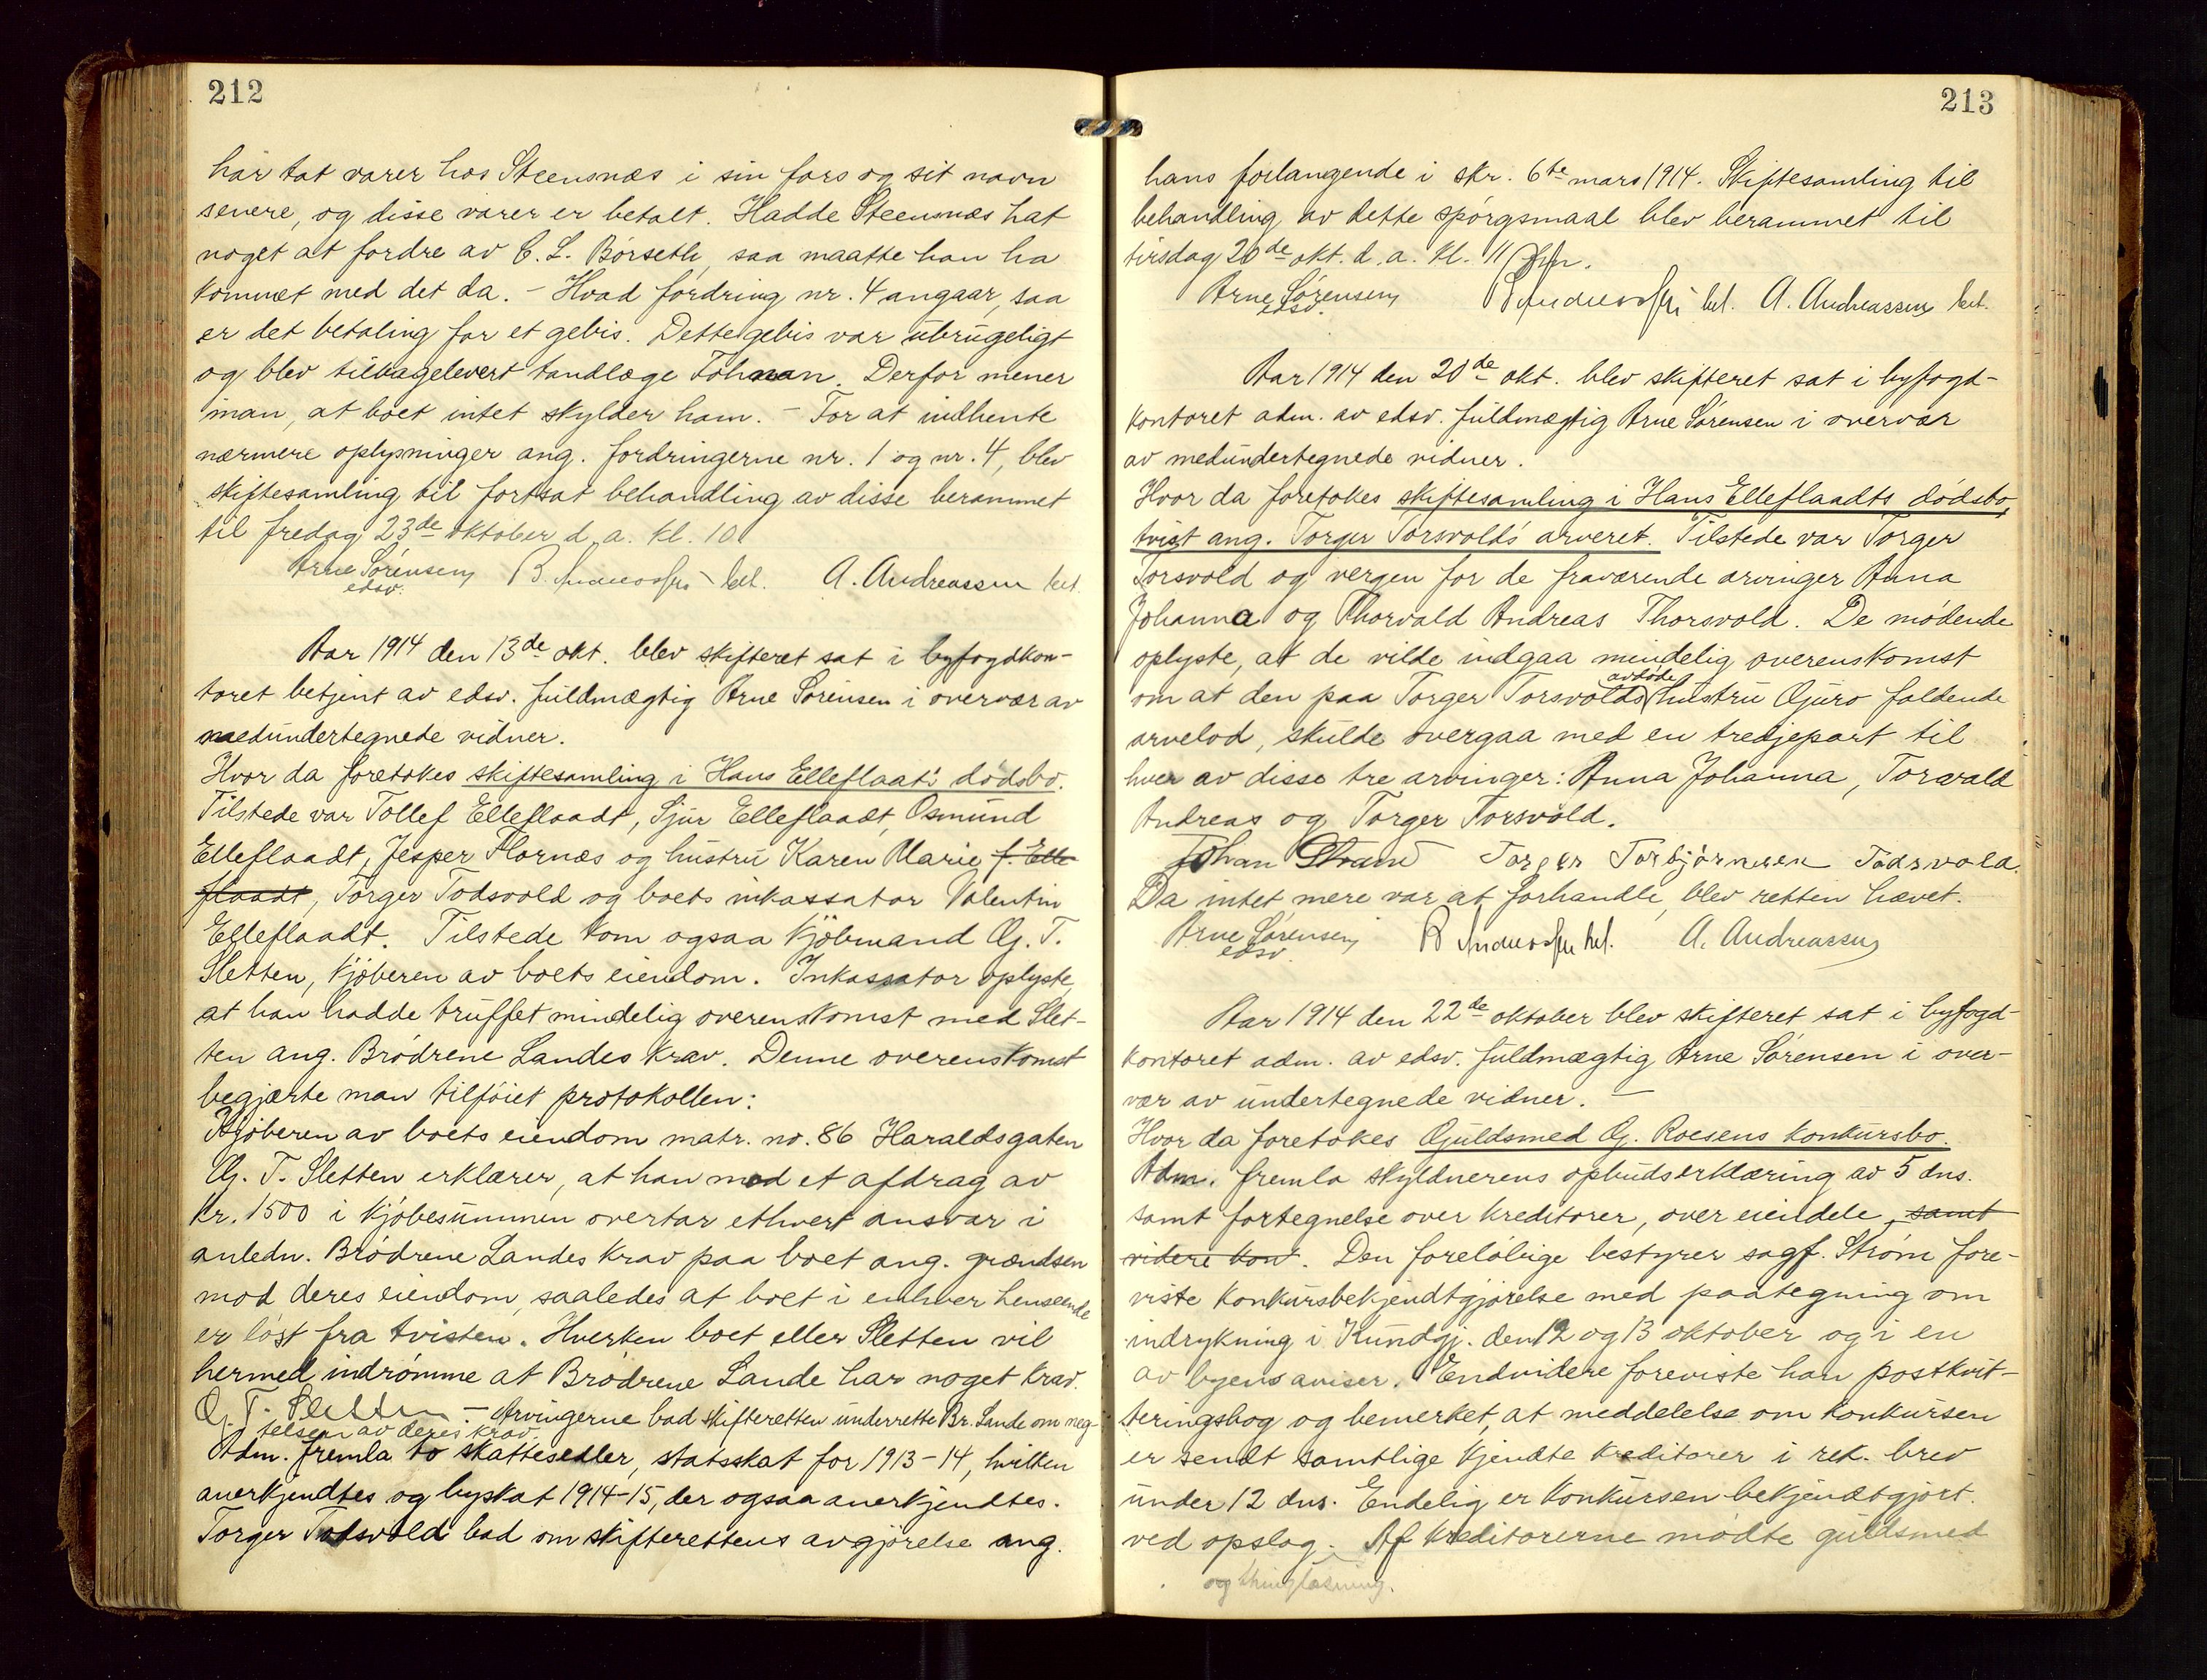 212
har tat varer hos Steensnæs i sin fars og sit navn
senere, og disse varer er betalt. Hadde Steensnæs hat
noget at fordre av C. L. Børseth, saa maatte han ha
kommet med det da. - Hvad fordring nr. 4 angaar, saa
er det betaling for et gebis. Dette gebis var ubrugeligt
og blev tilbagelevert tandlæge Fohnan. Derfor mener
man, at boet intet skylder ham. - For at indhente
nærmere oplysninger ang. fordringerne nr. 1 og nr. 4, blev
skiftesamling til fortsat behandling av disse berammet
til fredag 23de oktober d. a. kl. 10.
Arne Sørensen A. Andreassen
edsv.
Aar 1914 den 13de okt. blev skifteret sat i byfogdkon-
toret betjent av edsv. fuldmægtig Arne Sørensen i overvær av
medundertegnede vidner.
Hvor da foretokes skiftesamling i Hans Elleflaat's dødsbo.
Tilstede var Tollef Elleflaadt, Sjur Elleflaadt, Osmund
Elleflaadt, Jesper Flornæs og hustru Karen Marie f. Elle-
flaadt, Torger Todsvold og boets inkassator Valentin
Elleflaadt. Tilstede kom ogsaa kjøbmand G. T.
Sletten, kjøberen av boets eiendom. Inkassator oplyste,
at han hadde truffet mindelig overenskomst med Slet-
ten ang. Brødrene Landes krav. Denne overenskomst
begjærte man tilføiet protokollen:
Kjøberen av boets eiendom matr. no. 86 Haraldsgaten
G. T. Sletten erklærer, at han mod et afdrag av
kr. 1500 i kjøbesummen overtar ethvert ansvar i
anledn. Brødrene Landes krav paa boet ang. grændsen
mod deres eiendom, saaledes at boet i enhver henseende
er løst fra tvisten. Hverken boet eller Sletten vil
hermed indrømme at Brødrene Lande har noget krav.
G. T. Sletten - Arvingerne bad skifteretten underrette Br. Lande om neg-
telsen av deres krav.
Adm. fremla to skattesedler, statsskat for 1913-14, hvilken
anerkjendtes og byskat 1914-15, der ogsaa anerkjendtes.
Torger Todsvold bad om skifterettens avgjørelse ang.
213
hans forlangende i skr. 6te mars 1914. Skiftesamling til
behandling av dette spørgsmaal blev berammet til
tirsdag 20de okt. d. a. kl. 11 fm.
Arne Sørensen A. Andreassen
edsv.
Aar 1914 den 20de okt. blev skifteret sat i byfogd-
kontoret adm. av edsv. fuldmægtig Arne Sørensen i overvær
av medundertegnede vidner.
Hvor da foretokes skiftesamling i Hans Elleflaadts dødsbo,
tvist ang. Torger Torsvold's arveret. Tilstede var Torger
Torsvold og vergen for de fraværende arvinger Anna
Johanna og Thorvald Andreas Thorsvold. De mødende
oplyste, at de vilde indgaa mindelig overenskomst
om at den paa Torger Torsvolds avdøde hustru Gjuro faldende
arvelod, skulde overgaa med en tredjepart til
hver av disse tre arvinger: Anna Johanna, Torvald
Andreas og Torger Torsvold.
Johan Strand Torger Torbjørnsen Todsvold.
Da intet mere var at forhandle, blev retten hævet.
Arne Sørensen A. Andreassen
edsv.
Aar 1914 den 22de oktober blev skifteret sat i byfogd-
kontoret adm. av edsv. fuldmægtig Arne Sørensen i over-
vær av undertegnede vidner. -
Hvor da foretokes Guldsmed G. Roesens konkursbo.
Adm. fremla skyldnerens opbudserklæring av 5 dns.
samt fortegnelse over kreditorer, over eiendele, samt
videre kon. Den foreløbige bestyrer sagf. Strøm fore-
viste konkursbekjendtgjørelse med paategning om
indrykning i Kundgj. den 12 og 13 oktober og i en
av byens aviser. Endvidere foreviste han postkvit-
teringsbog og bemerket, at meddelelse om konkursen
er sendt samtlige kjendte kreditorer i rek. brev
under 12 dns. Endelig er konkursen bekjendtgjort
ved opslag. Af kreditorerne mødte guldsmed
og thinglæsning.